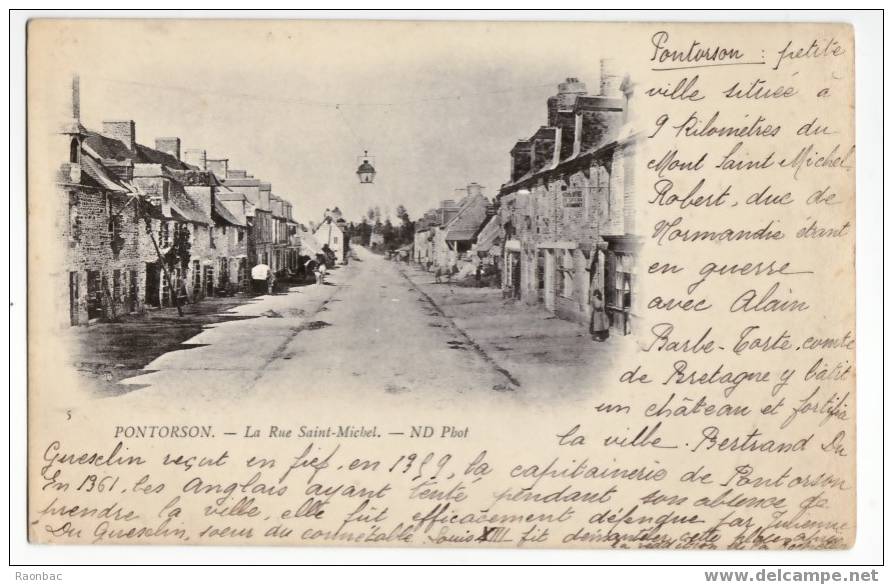 Pontorson : petite
ville située à
9 Kilométres du
Mont Saint Michel.
Robert, duc de
Normandie étant
en guerre
avec Alain
Barbe-Torte, comte
de Bretagne y bâtit
un château et fortifia
la ville. Bertrand Du
Guesclin reçut en fief, en 1359, la capitainerie de Pontorson
En 1361, les Anglais ayant tenté pendant son absence de
prendre la ville, elle fût efficacement défendue par Julienne
Du Guesclin, soeur du connetable. Louis XIII fit démanteler cette place après
5
PONTORSON. — La Rue Saint-Michel. — ND Phot
Raonbac
www.delcampe.net